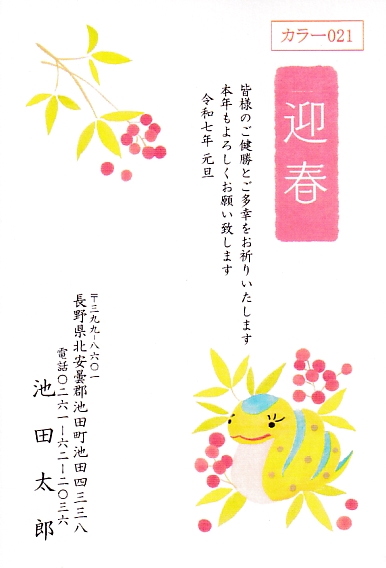 カラー021
迎春
皆様のご健勝とご多幸をお祈りいたします
本年もよろしくお願い致します
令和七年 元旦
〒三九九ー八六〇一
長野県北安曇郡池田町池田四三三八
電話〇二六一ー六二ー二〇三六
池田太郎